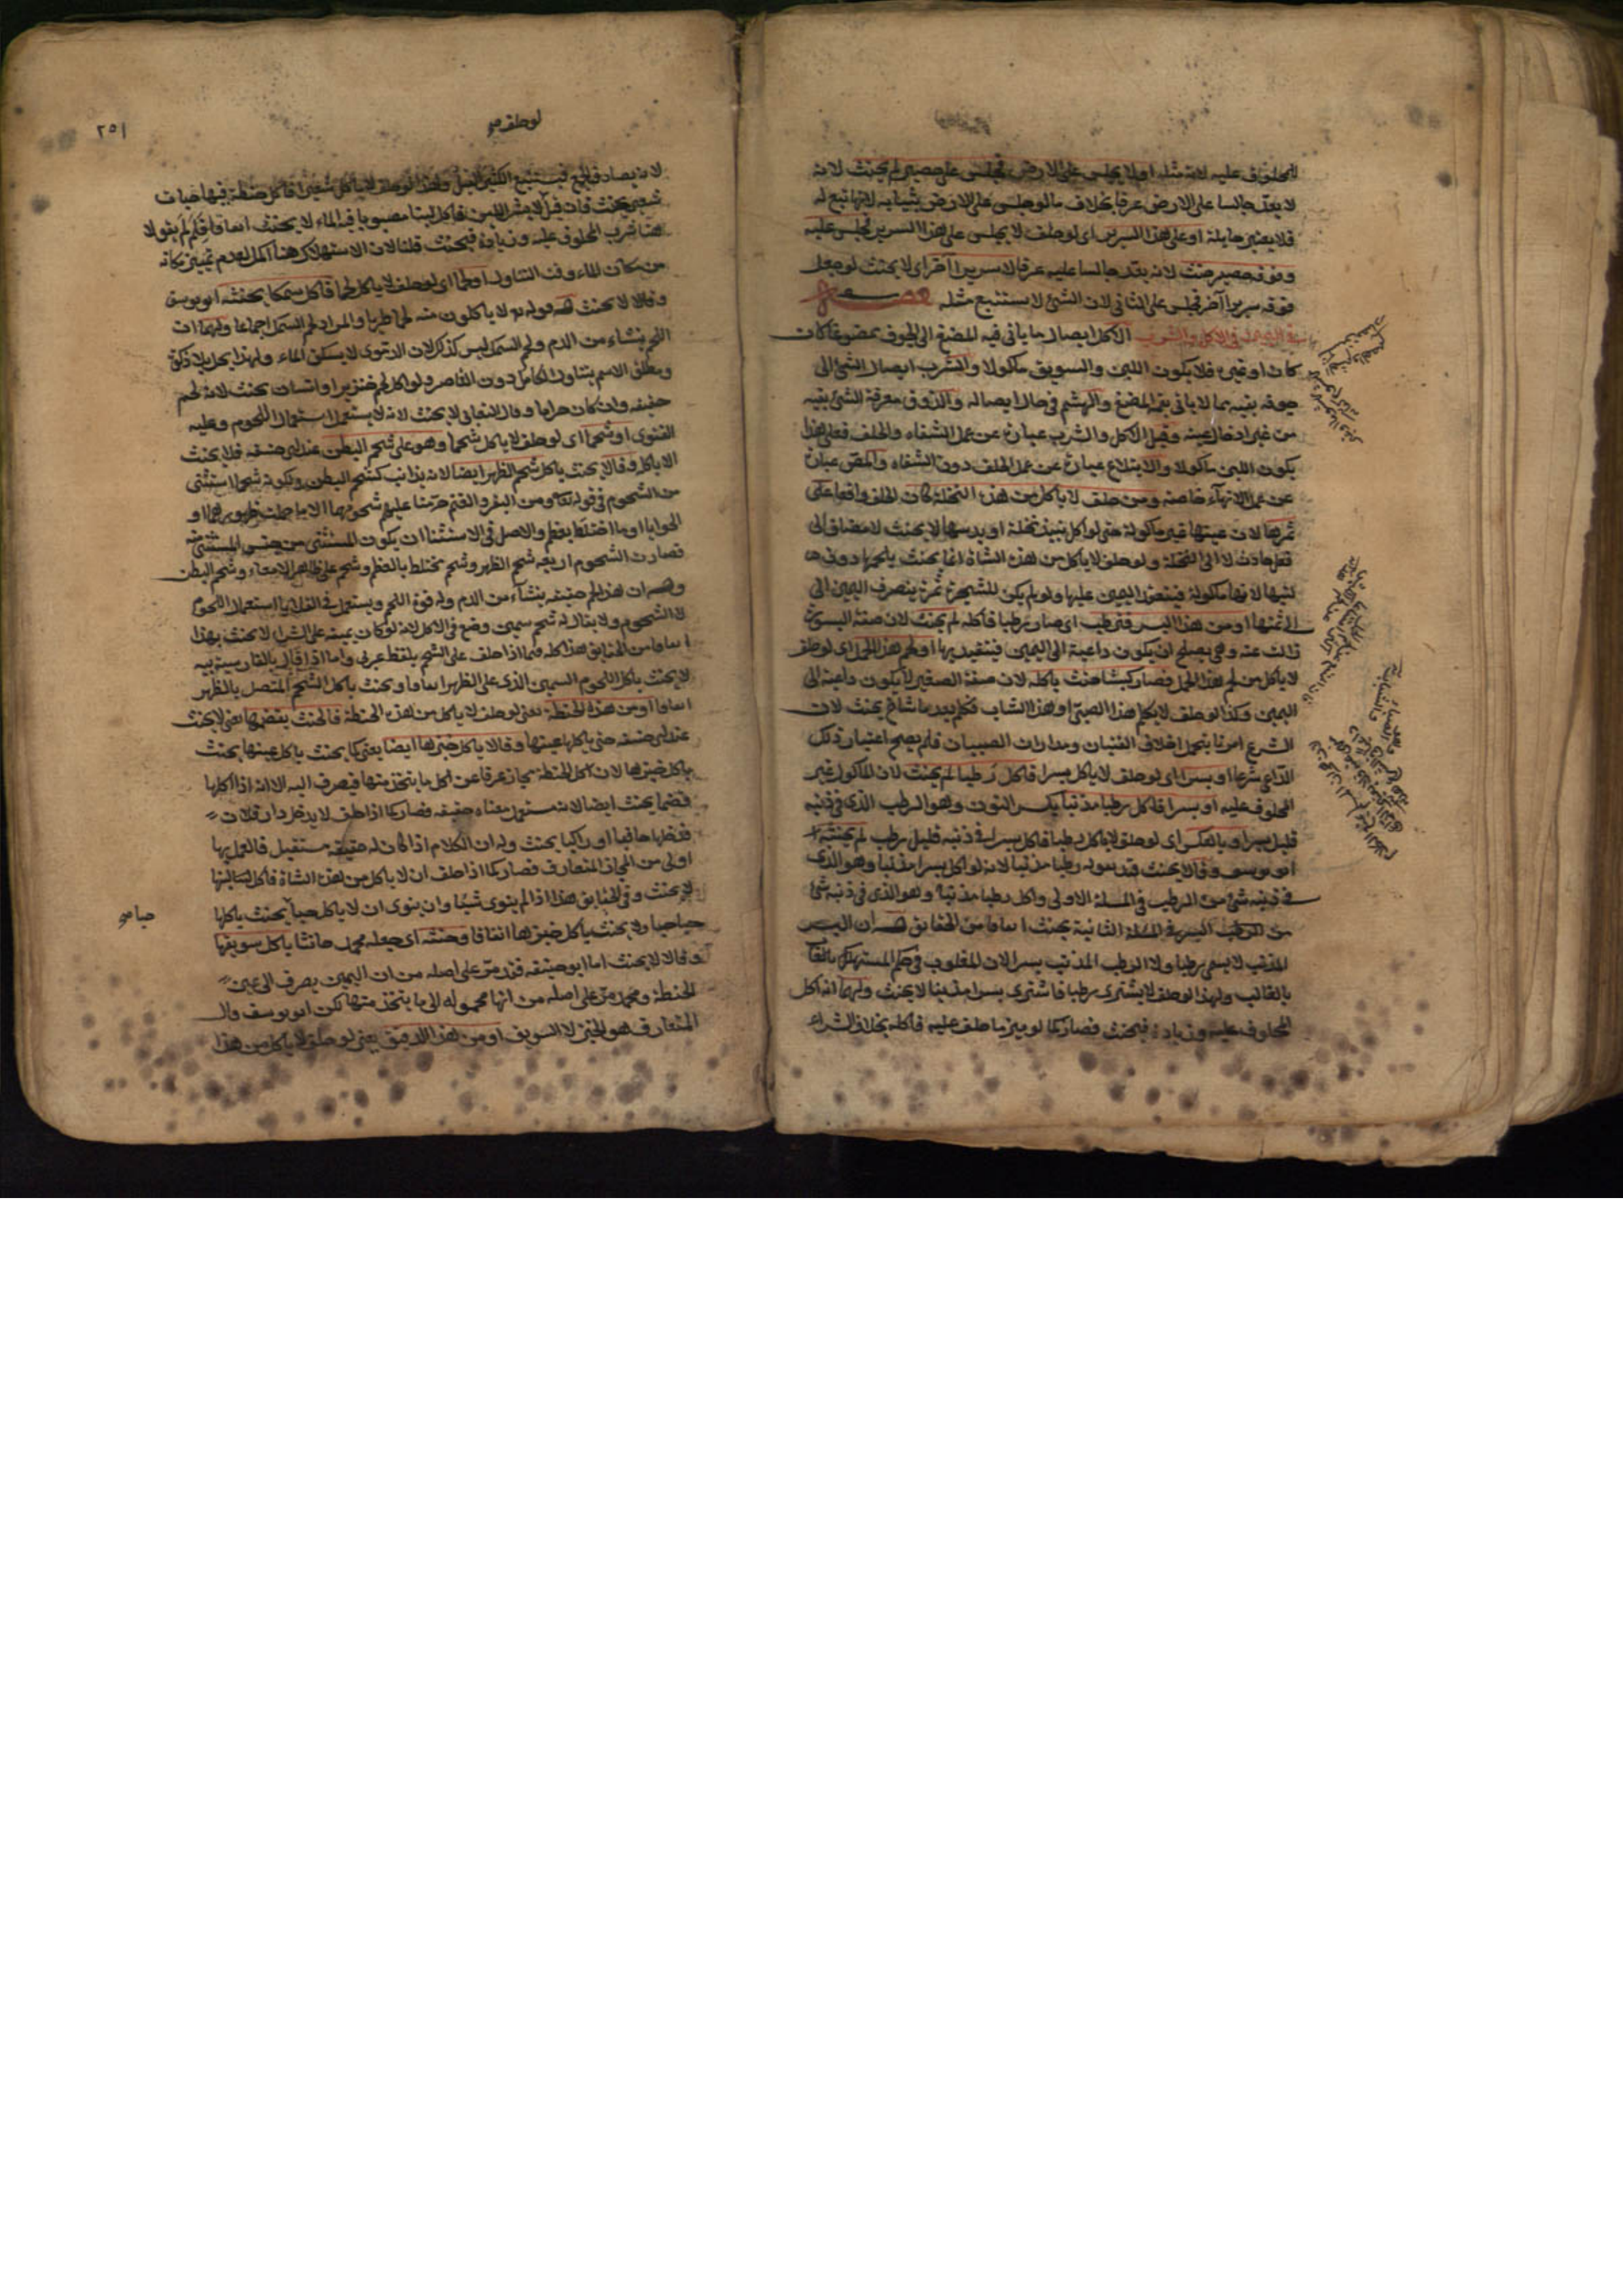 المحلوف عليه لانه مثله او لا يجلس على الارض فجلس على حصير لم يحنث لانه
لا يعد جالسا على الارض عرفا بخلاف ما لو جلس على الارض بثيابه لانها تبع له
فلا يعتبر حايلة او على هذا السرير اى لو حلف لا يجلس على هذا السرير فجلس عليه
وفوقه حصير حنث لانه يعد جالسا عليه عرفا لا سرير آخر اى لا يحنث لو جعل
فوقه سرير آخر فجلس على الثانى لان الشئ لا يستتبع مثله فصل
فى اليمين فى الاكل والشرب الاكل ايصال ما يأتى فيه المضغ الى الجوف ممضوغا كان
كان او غيره فلا يكون اللبن والسويق مأكولا والشرب ايصال الشئ الى
جوفه بفيه مما لا يأتى فيه المضغ والهشم فى حال ايصاله والذوق معرفة الشئ بفيه
من غير ادخال عينه وقيل الاكل والشرب عبارة عن عمل الشفاه والحلق فعلى هذا
يكون اللبن مأكولا والابتلاع عبارة عن عمل الحلق دون الشفاه والمص عبارة
عن عمل اللهاة خاصة ومن حلف لا يأكل من هذه النخلة كان الحلف واقعا على
ثمرها لان عينها غير مأكولة حتى لو اكل نبيذ نخلة او بسها لا يحنث لا مضاف الى
فعل حادث لا الى النخلة ولو حلف لا يأكل من هذه الشاة انما يحنث بلحمها دون
لبنها لانها مأكولة فينعقد اليمين عليها ولو لم يكن للشجرة ثمرة ينصرف اليمين الى
الى ثمنها او من هذا البسر فترطب اى صار رطبا فاكله لم يحنث لان صفة البسورة
زالت عنه وهى يصلح ان يكون داعية الى اليمين فيتقيد بها او لحم هذا الحمل اى لو حلف
لا يأكل من لحم هذا الحمل فصار كبشا حنث باكله لان صفة الصغير لا يكون داعية الى
اليمين وكذا لو حلف لا يكلم هذا الصبى او هذا الشاب فكلم بعد ما شاخ يحنث لان
الشرع امرنا بتحمل اخلاق الفتيان ومدارات الصبيان فلم يصح اعتبار ذلك
الداعى شرعا او بسرا اى لو حلف لا يأكل بسرا فاكل رطبا لم يحنث لان المأكول غير
المحلوف عليه او بسرا فاكل رطبا مذنبا بكسر النون وهو الرطب الذى فى ذنبه
قليل بسر او بالعكس اى لو حلف لا يأكل رطبا فاكل بسرا فى ذنبه قليل رطب لم يحنثه
ابو يوسف وقالا يحنث قيد بقوله رطبا مذنبا لانه لو اكل بسرا مذنبا وهو الذى
فى ذنبه شئ من الرطب فى المسئلة الاولى واكل رطبا مذنبا وهو الذى فى ذنبه شئ
من البسر فى المسئلة الثانية يحنث اتفاقا من الحقايق له ان البسر
المذنب لا يسمى رطبا ولا الرطب المذنب بسرا لان المغلوب فى حكم المستهلك
بالغالب ولهذا لو حلف لا يشترى رطبا فاشترى بسرا مذنبا لا يحنث ولهما انه اكل
المحلوف عليه وزيادة فيحنث فصار كما لو ميز ما حلف عليه فاكله بخلاف الشراء
٢٥١
لو حلف
لانه يصادف الجميع فيستتبع الكثير القليل ولهذا لو حلف لا يأكل شعيرا فاكل حنطة فيها حبات
شعير يحنث فان قيل لا يشرب اللبن فاكل لبنا مصبوبا فيه الماء لا يحنث اتفاقا فلم لم يقولا
هنا شرب المحلوف عليه وزيادة فيحنث قلنا لان الاستهلاك هنا اكمل لعدم تمييز مكانه
من مكان الماء وقت التناول او لحما اى لو حلف لا يأكل لحما فاكل سمكا يحنثه ابو يوسف
وقالا لا يحنث له قوله تعا لا يأكلون منه لحما طريا والمراد لحم السمك اجماعا ولهما ان
اللحم ينشاء من الدم ولحم السمك ليس كذلك لان الدموى لا يسكن الماء ولهذا يحل بلا ذكوة
ومطلق الاسم يتناول الكامل دون القاصر ولو اكل لحم خنزير او انسان يحنث لانه لحم
حقيقة وان كان حراما وقال العتابى لا يحنث لانه لا يستعمل استعمال اللحوم وعليه
الفتوى او شحما اى لو حلف لا يأكل شحما وهو على شحم البطن عند ابى حنيفه فلا يحنث
الا باكله وقالا يحنث باكل شحم الظهر ايضا لانه يذاب كشحم البطن ولكونه شحما استثنى
من الشحوم فى قوله تعا ومن البقر والغنم حرمنا عليهم شحومهما الا ما حملت ظهورهما او
الحوايا او ما اختلط بعظم والاصل فى الاستثناء ان يكون المستثنى من جنس المستثنى منه
فصارت الشحوم اربعة شحم الظهر وشحم مختلط بالعظم وشحم على ظاهر الامعاء وشحم البطن
وله ان هذا لحم حقيقة ينشاء من الدم وله قوة اللحم ويستعمل فى القلايا استعمال اللحوم
لا الشحوم ولا يقال له شحم سمين وضع فى الاكل لانه لو كان يمينه على الشراء لا يحنث بهذا
اتفاقا من الحقايق هذا كله فيما اذا حلف على الشحم بلفظ عربى واما اذا قال بالفارسية پيه
لا يحنث باكل اللحوم السمين الذى على الظهر اتفاقا ويحنث باكل الشحم المتصل بالظهر
اتفاقا او من هذه الحنطة يعنى لو حلف لا يأكل من هذه الحنطة فالحنث بقضمها اى لا يحنث
عند ابى حنيفه حتى يأكلها عينها وقالا يأكل خبزها ايضا يعنى كما يحنث باكل عينها يحنث
باكل خبزها لان اكل الحنطة مجاز عرفا عن اكل ما يتخذ منها فيصرف اليه الا انه اذا اكلها
قضما يحنث ايضا لانه مستعمل معناه حقيقة فصار كما اذا حلف لا يدخل دار فلان
فدخلها حافيا او راكبا يحنث وله ان الكلام اذا كان له حقيقة مستقبل فالعمل بها
اولى من المجاز المتعارف فصار كما اذا حلف ان لا يأكل من هذه الشاة فاكل لبنها
لا يحنث وفى الحقايق هذا اذا لم ينوى شيئا وان ينوى ان لا يأكل حبا يحنث باكلها
حباحبا ولا يحنث باكل خبزها اتفاقا وحنثه اى جعله محمد حانثا باكل سويقها
وقالا لا يحنث اما ابو حنيفه فقد مر على اصله من ان اليمين يصرف الى عين
الحنطة ومحمد مر على اصله من انها محمولة الى ما يتخذ منها لكن ابو يوسف قال
المتعارف هو الخبز لا السويق او من هذا الدقيق يعنى لو حلف لا يأكل من هذا